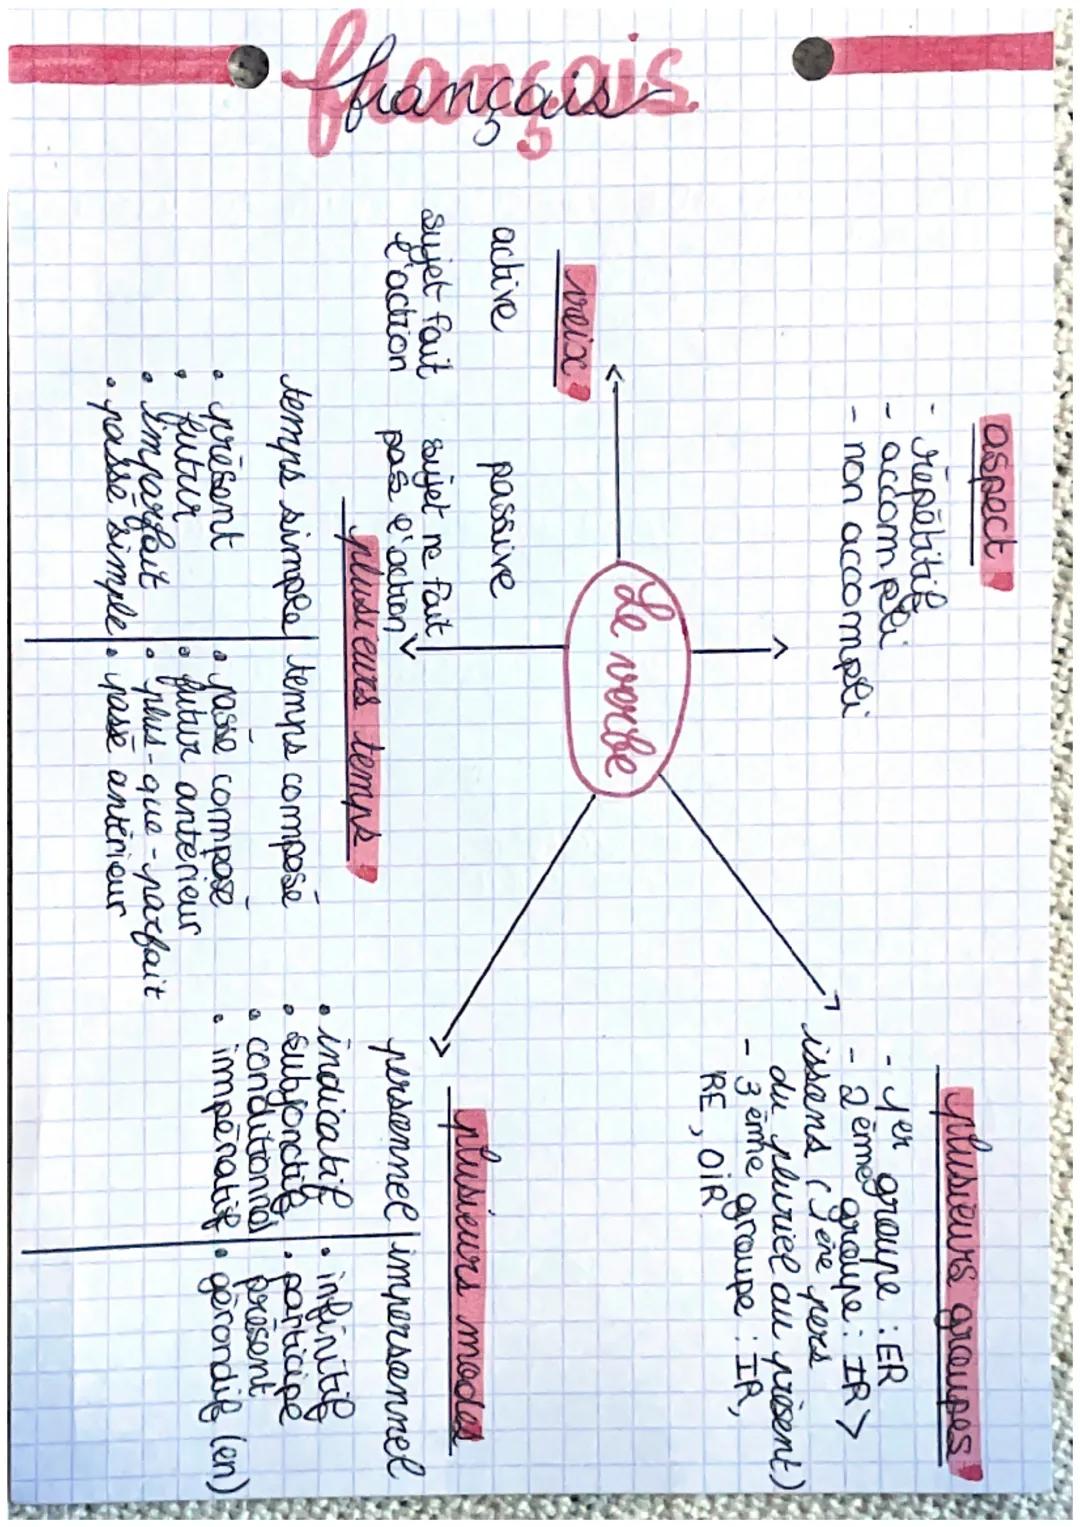 français
aspect
- répétitif
- accompli
- non accompli
plusieurs groupes
- 1er groupe : ER
- 2ème groupe : IR >
issons (1ère pers
du pluriel au présent)
- 3ème groupe : IR,
RE, OIR
Le verbe
voix
active passive
sujet fait sujet ne fait
l'action pas l'action
plusieurs temps
temps simple temps composé
• présent • passé composé
• futur • futur antérieur
• imparfait • plus-que-parfait
• passé simple • passé antérieur
plusieurs modes
personnel impersonnel
• indicatif • infinitif
• subjonctif • participe
• conditionnel présent
• impératif • gérondif (en)